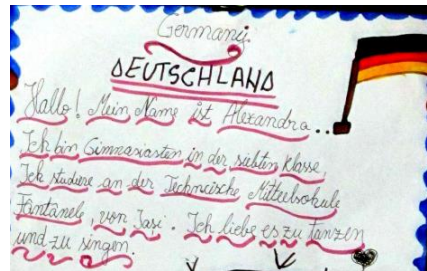 Germany.
DEUTSCHLAND
Hallo! Mein Name ist Alexandra..
Ich bin Gimnasiasten in der siebten Klasse,
Ich studiere an der Technische Mittelschule
Fântânele, von Iasi. Ich liebe es zu tanzen
und zu singen.